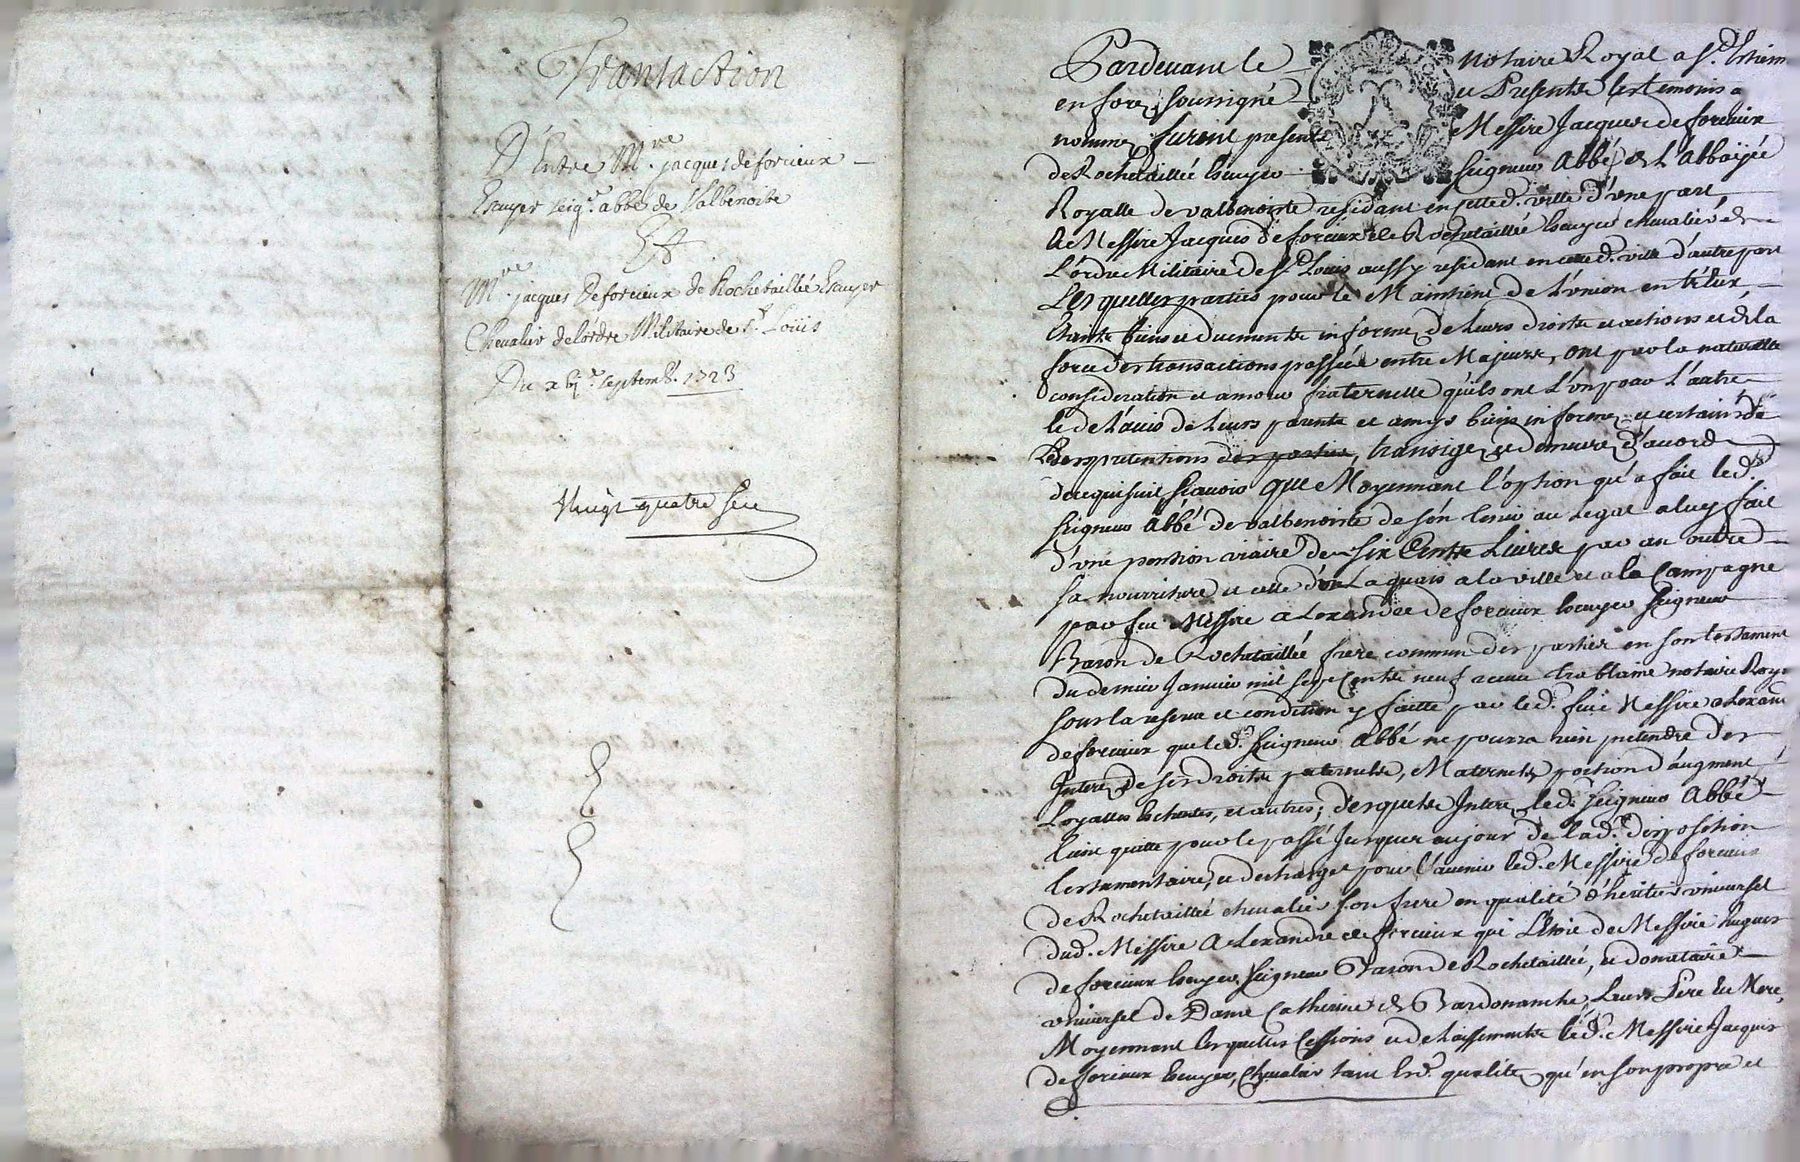 Transaction
D'Entre Mre. jacques de forcieux
Escuyer seigr. abbé de Valbenoite
Et
Mre. jacques deforcieux de Rochetaillée Escuyer
Chevalier de lordre Militaire de St. Loüis
Du septemb. 1723
Vingt quatre
Pardevant le notaire Royal a St. Estien
en forez soussigné et Presents les temoins a
nommez furent presents Messire Jacques de forcieux
de Rochetaillée Escuyer Seigneur Abbé de L'Abbaÿée
Royalle de valbenoiste residant en cetted. ville d'une part
& Messire Jacques de forcieux de Rochetaillée Escuyer chevalier de
L'ordre Militaire de St. Louis aussy residant en cetted. ville d'autre part
Lesquelles parties pour le Maintient de L'union entr'eux
Estants biens et duements informez de Leurs droits et actions et de la
force des transactions passées entre Majeurs, ont par la naturelle
consideration et amour fraternelle qu'ils ont L'un pour L'autre
et de L'avis de Leurs parents et amys biens informez et certains de
Leurs pretentions des parties, transigez et demeurez d'acord
de ce qui suit scavoir que Moyennant l'option qu'a fait led.
Seigneur Abbé de valbenoiste de s'en tenir au Legat a luy fait
d'une pention viaire de six Cents Livres par an outre
sa nourriture et celle d'un Laquais a la ville et a la Campagne
par feu Messire alexandre de forcieux Escuyer Seigneur
Baron de Rochetaillée frere commun des parties en son testament
du dernier Janvier mil sept Cents neuf receu notaire Roy
sous la reserve et condition y faitte par led. feu Messire alexan
deforcieux que led. Seigneur Abbé ne pourra rien pretendre des
Interez de ses droits paternels, Maternels portion d'augment
Loyalles Echeutes, et autres; desquels Interez led. Seigneur Abbé
tient quitte pour le passé Jusques au jour de lad. disposition
testamentaire, et decharge pour l'avenir led. Messire de forcieux
de Rochetaillée chevalier son frere en qualité d'heritier universel
dud. Messire Alexandre de forcieux qui L'étoit de Messire hugues
de forcieux Escuyer Seigneur Baron de Rochetaillée, et donataire
universel de Dame Catherine de Bardonanche, Leurs Pere Et Mere,
Moyennant lesquelles Cessions et delaissements led. Messire Jacques
de forcieux Escuyer, Chevalier tant esd. qualitez qu'en son propre et